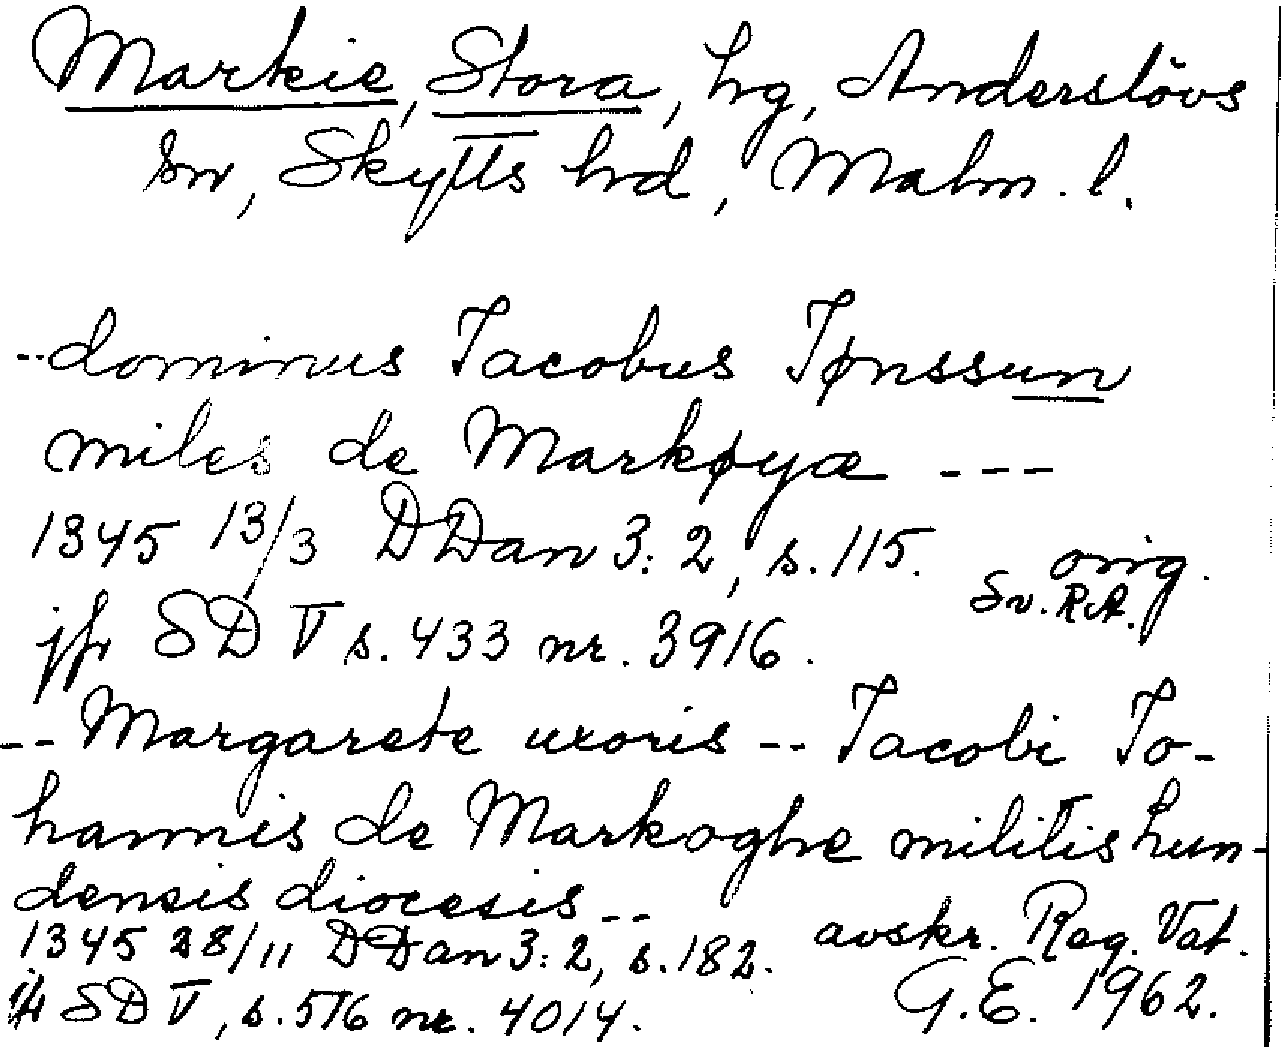 Markie, Stora, hg, Anderslövs
sn, Skytts hrd, Malm. l.
--dominus Jacobus Jønssun
miles de Markøyæ ---
1345 13/3 DDan 3:2, s. 115. orig.
Sv. R.A.
jfr SD V s. 433 nr. 3916.
-- Margarete uxoris -- Jacobi Jo-
hannis de Markoghe militis Lun-
densis diocesis --
1345 28/11 DDan 3:2, s. 182. avskr. Reg. Vat.
jfr SD V, s. 516 nr. 4014. G.E. 1962.